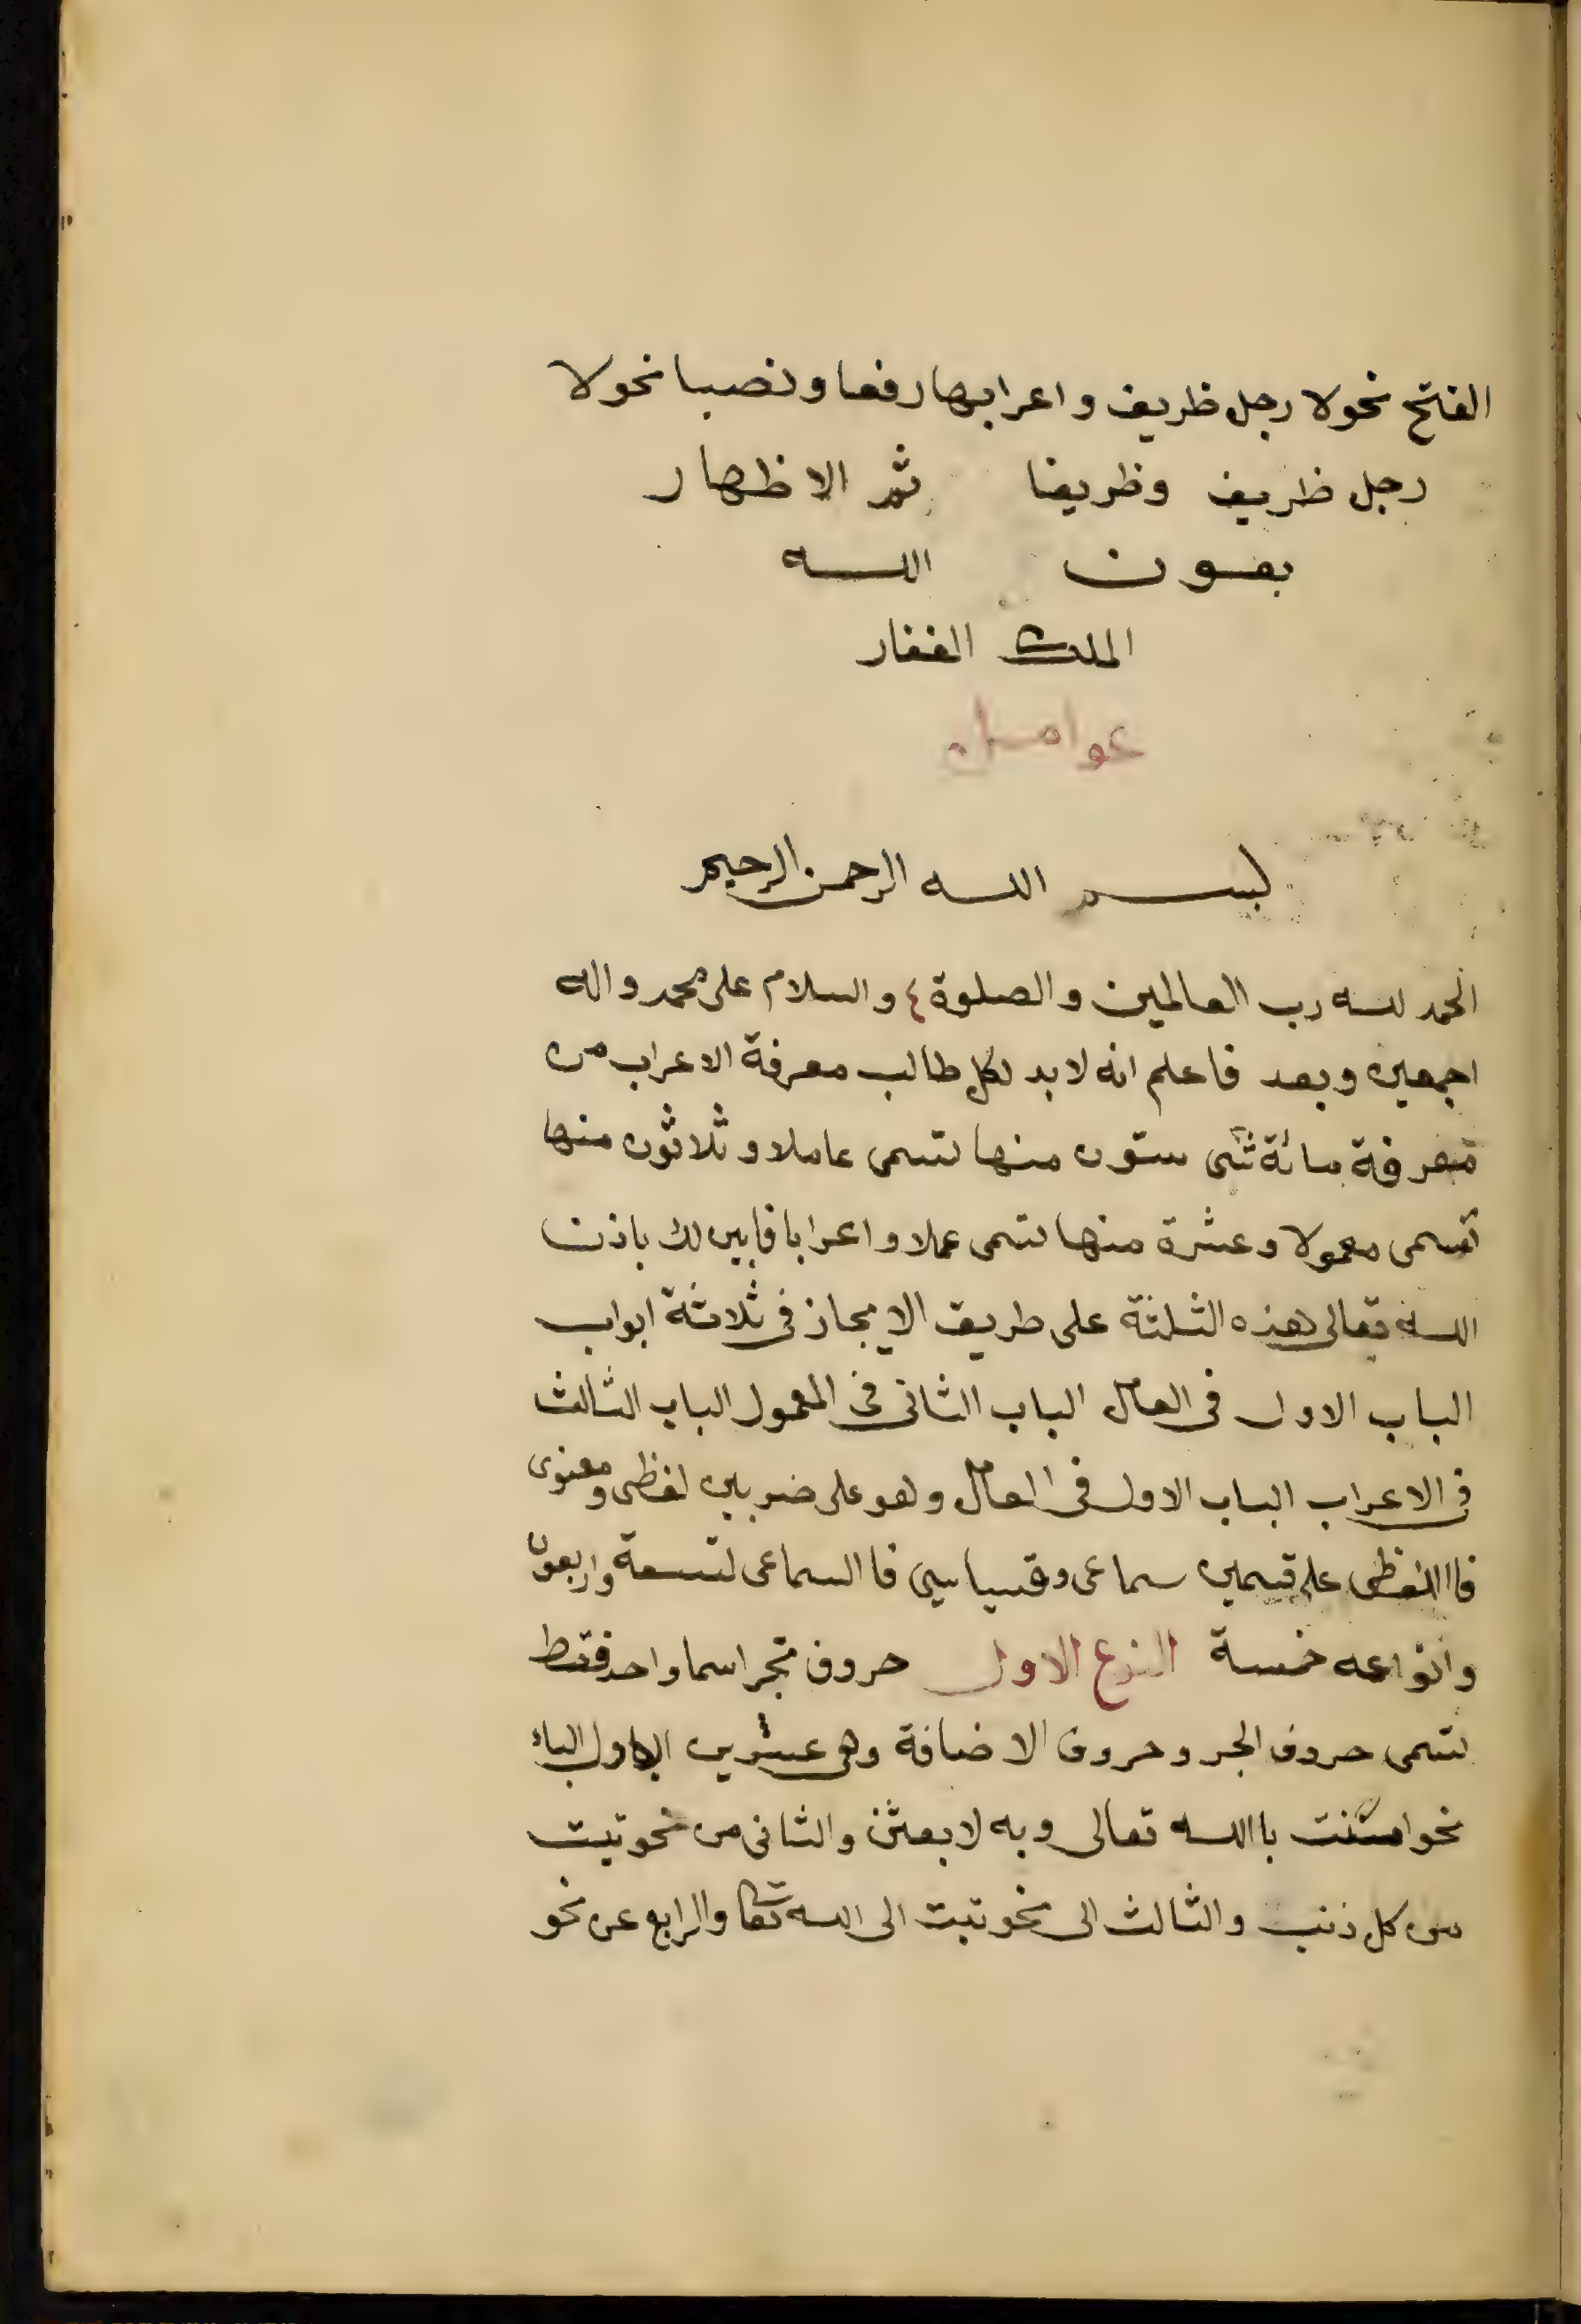 الفتح نحو لا رجل ظريف واعرابها رفعا ونصبا نحو لا
رجل ظريف وظريفا ثم الاظهار
بعون الله
الملك الغفار
عوامل
بسم الله الرحمن الرحيم
الحمد لله رب العالمين والصلوة والسلام على محمد واله
اجمعين وبعد فاعلم انه لا بد لكل طالب معرفة الاعراب من
معرفة مائة شئ ستون منها تسمى عاملا وثلاثون منها
تسمى معمولا وعشرة منها تسمى عملا واعرابا فابين لك باذن
الله تعالى هذه الثلثة على طريق الايجاز فى ثلاثة ابواب
الباب الاول فى العامل الباب الثانى فى المعمول الباب الثالث
فى الاعراب الباب الاول فى العامل وهو على ضربين لفظى ومعنوى
فاللفظى على قسمين سماعى وقياسى فا السماعى لتسعة واربعون
وانواعه خمسة النوع الاول حروف تجر اسما واحد فقط
تسمى حروف الجر وحروف الاضافة وهى عشرين الاول الباء
نحو امنت باالله تعالى وبه لابعثن والثانى من نحو تبت
من كل ذنب والثالث الى نحو تبت الى الله تعا والرابع عن نحو